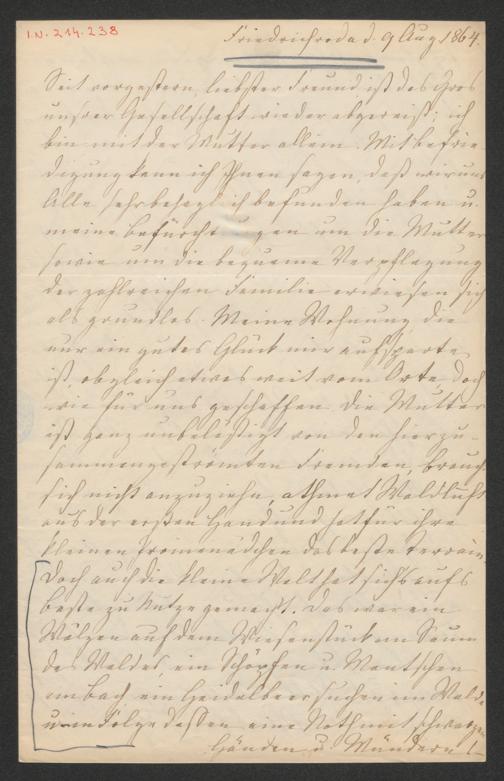 I.N. 214.238
Friedrichroda d. 9 Aug 1864.
Seit vorgestern, liebster Freund ist das Gros
unsrer Gesellschaft wieder abgereist; ich
bin mit der Mutter allein. Mit Befrie-
digung kann ich Ihnen sagen, daß wir uns
Alle sehr behaglich befunden haben u.
meine Befürchtungen um die Mutter
sowie um die bequeme Verpflegung
der zahlreichen Familie erwiesen sich
als grundlos. Meine Wohnung, die
nur ein gutes Glück mir aufsparte,
ist obgleich etwas weit vom Orte, doch
wie für uns geschaffen. Die Mutter
ist ganz unbelästigt von den hier zu-
sammengeströmten Fremden, brauch
sich nicht anzuziehn, athmet Waldluft
aus der ersten Hand und hat für ihre
kleinen Promenädchen das beste Terrain.
Doch auch die kleine Welt hat sichs aufs
beste zu Nutze gemacht. Das war ein
Wälzen auf dem Wiesenstück am Saum
des Waldes, ein Schöpfen u. Mantschen
am Bach, ein Heidelbeersuchen im Walde
u. in Folge dessen eine Noth mit schwarzen
Händen u. Mündern